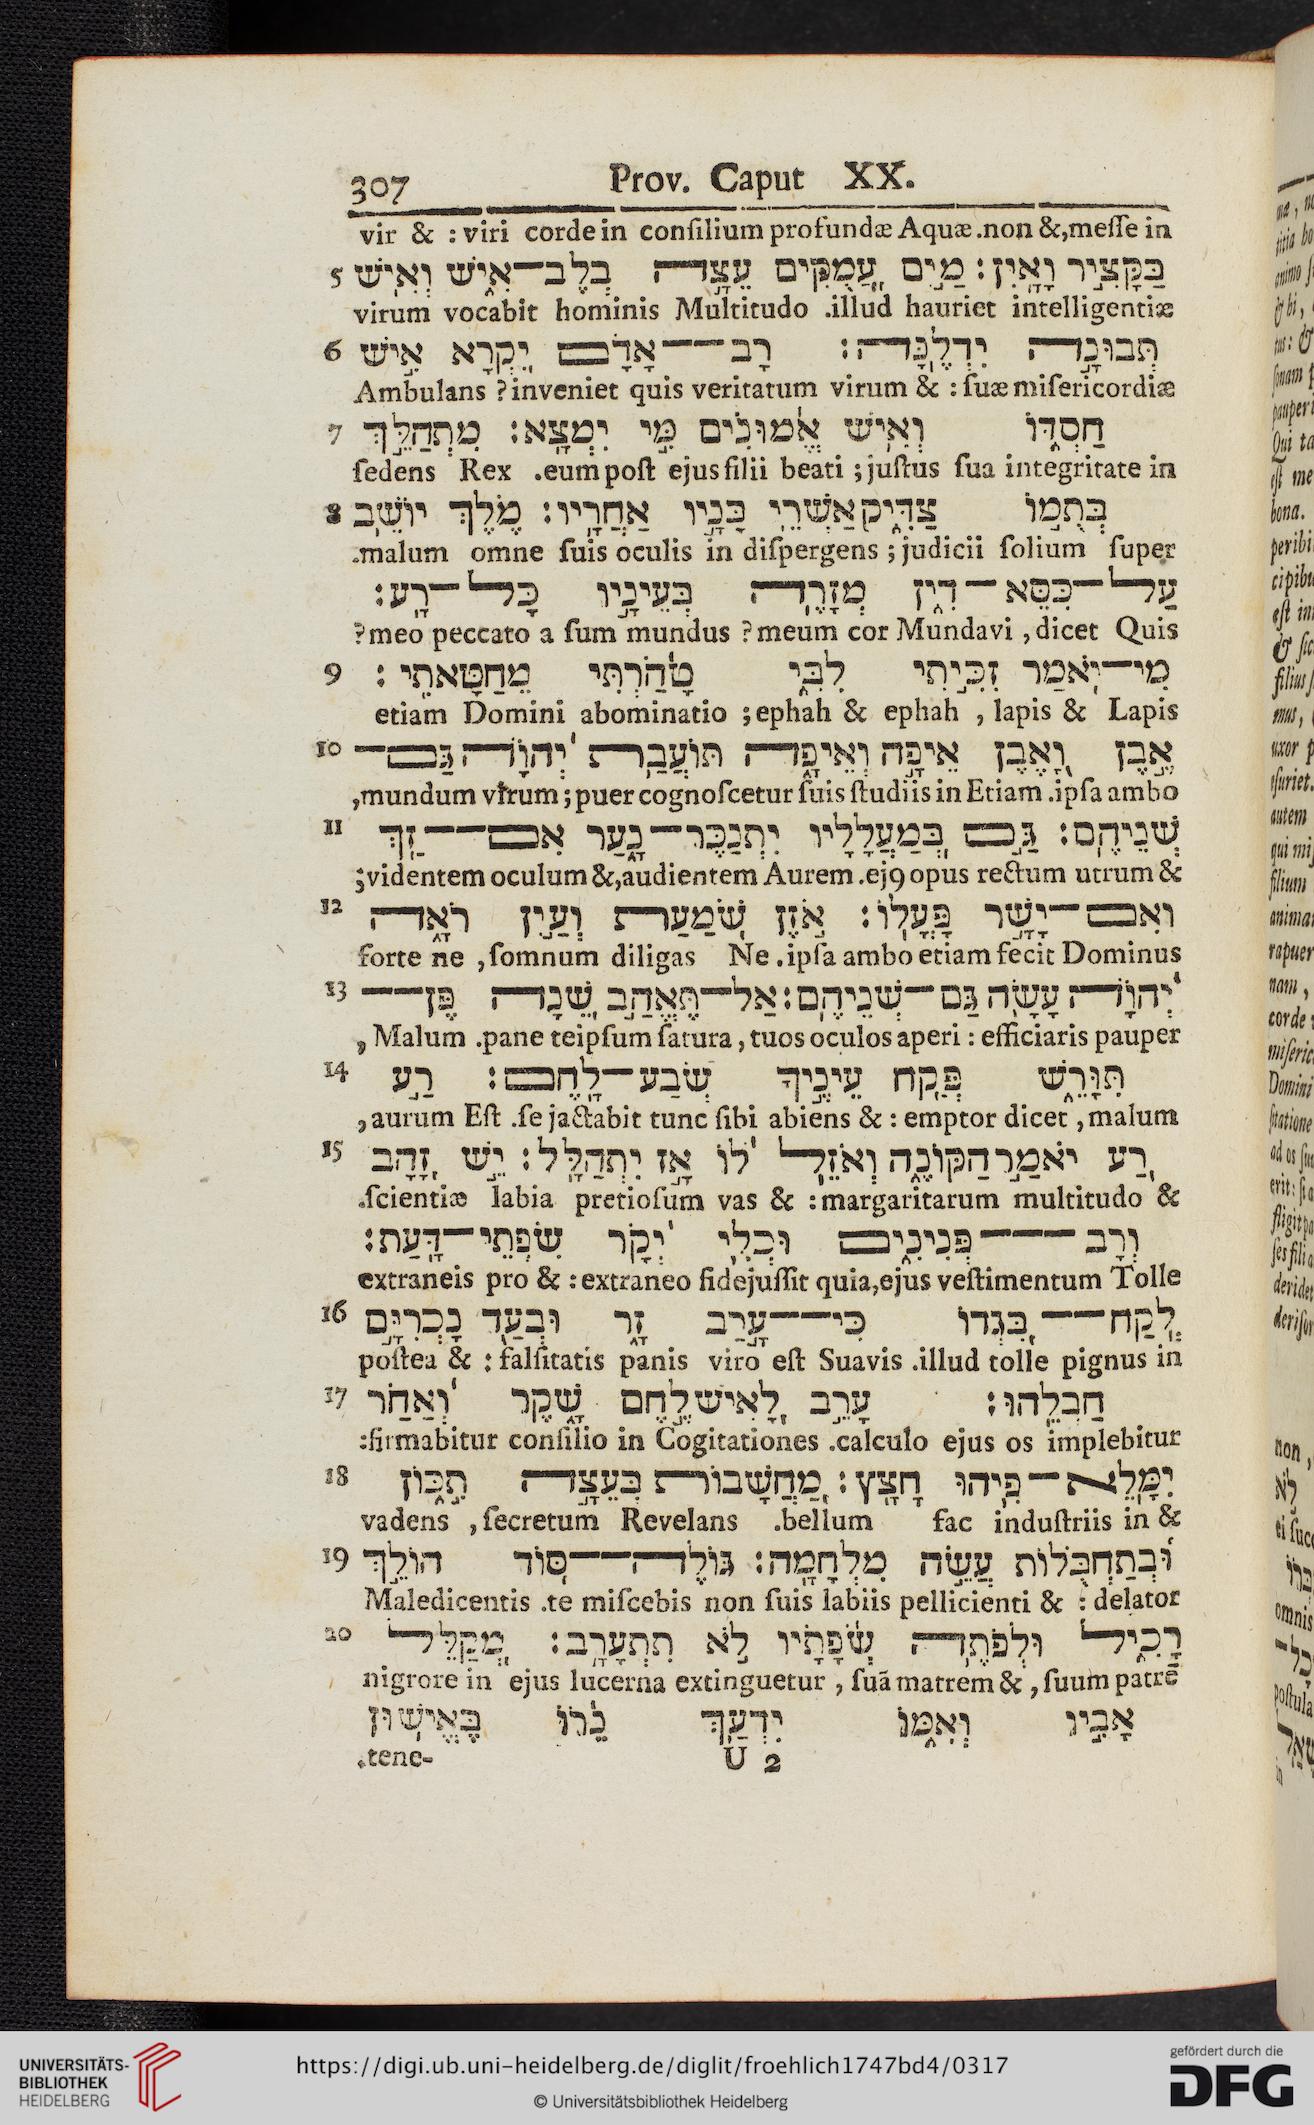 307 Prov. Caput XX.
vir & : viri corde in conſilium profundæ Aquæ .non &, meſſe in
5 בַּקָּצִיר וָאָיִן : מַיִם עֲמֻקִּים עֵצָה בְלֶב־אִישׁ וְאִישׁ
virum vocabit hominis Multitudo .illud hauriet intelligentiæ
6 תְּבוּנָה יִדְלֶנָּה : רָב־אָדָם יִקְרָא אִישׁ
Ambulans ? inveniet quis veritatum virum & : ſuæ miſericordiæ
7 חַסְדּוֹ וְאִישׁ אֱמוּנִים מִי יִמְצָא : מִתְהַלֵּךְ
ſedens Rex .eum poſt ejus filii beati ; juſtus ſua integritate in
8 בְּתֻמּוֹ צַדִּיק אַשְׁרֵי בָּנָיו אַחֲרָיו : מֶלֶךְ יוֹשֵׁב
.malum omne ſuis oculis in diſpergens ; judicii ſolium ſuper
עַל־כִּסֵּא־דִין מְזָרֶה בְעֵינָיו כָּל־רָע :
? meo peccato a ſum mundus ? meum cor Mundavi , dicet Quis
9 מִי־יֹאמַר זִכִּיתִי לִבִּי טָהַרְתִּי מֵחַטָּאתִי :
etiam Domini abominatio ; ephah & ephah , lapis & Lapis
10 אֶבֶן וָאֶבֶן אֵיפָה וְאֵיפָה תּוֹעֲבַת יְהוָֹה גַּם־
,mundum vtrum ; puer cognoſcetur ſuis ſtudiis in Etiam .ipſa ambo
11 שְׁנֵיהֶם : גַּם בְּמַעֲלָלָיו יִתְנַכֶּר־נָעַר אִם־זַךְ
; videntem oculum &, audientem Aurem .ej9 opus rectum utrum &
12 וְאִם־יָשָׁר פָּעֳלוֹ : אֹזֶן שֹׁמַעַת וְעַיִן רֹאָה
forte ne , ſomnum diligas Ne .ipſa ambo etiam fecit Dominus
13 יְהוָֹה עָשָׂה גַּם־שְׁנֵיהֶם : אַל־תֶּאֱהַב שֵׁנָה פֶּן־
, Malum .pane teipſum ſatura , tuos oculos aperi : efficiaris pauper
14 תִּוָּרֵשׁ פְּקַח עֵינֶיךָ שְׂבַע־לָחֶם : רַע
, aurum Eſt .ſe jactabit tunc ſibi abiens & : emptor dicet , malum
15 רַע יֹאמַר הַקּוֹנֶה וְאֹזֵל לוֹ אָז יִתְהַלָּל : יֵשׁ זָהָב
.ſcientiæ labia pretioſum vas & : margaritarum multitudo &
וְרָב־פְּנִינִים וּכְלִי יְקָר שִׂפְתֵי־דָעַת :
extraneis pro & : extraneo fidejuſſit quia, ejus veſtimentum Tolle
16 לְקַח־בִּגְדוֹ כִּי־עָרַב זָר וּבְעַד נָכְרִיָּם
poſtea & : falſitatis panis viro eſt Suavis .illud tolle pignus in
17 חַבְלֵהוּ : עָרֵב לָאִישׁ לֶחֶם שָׁקֶר וְאַחַר
: firmabitur conſilio in Cogitationes .calculo ejus os implebitur
18 יִמָּלֵא־פִיהוּ חָצָץ : מַחֲשָׁבוֹת בְּעֵצָה תִכּוֹן
vadens , ſecretum Revelans .bellum fac induſtriis in &
19 וּבְתַחְבֻּלוֹת עֲשֵׂה מִלְחָמָה : גּוֹלֶה־סּוֹד הוֹלֵךְ
Maledicentis .te miſcebis non ſuis labiis pellicienti & : delator
20 רָכִיל וּלְפֹתֶה שְׂפָתָיו לֹא תִתְעָרָב : מְקַלֵּל
nigrore in ejus lucerna extinguetur , ſuã matrem & , ſuum patrẽ
אָבִיו וְאִמּוֹ יִדְעַךְ נֵרוֹ בֶּאֱישׁוּן
.tene-
U 2
UNIVERSITÄTS-
BIBLIOTHEK
HEIDELBERG
https://digi.ub.uni-heidelberg.de/diglit/froehlich1747bd4/0317
© Universitätsbibliothek Heidelberg
gefördert durch die
DFG